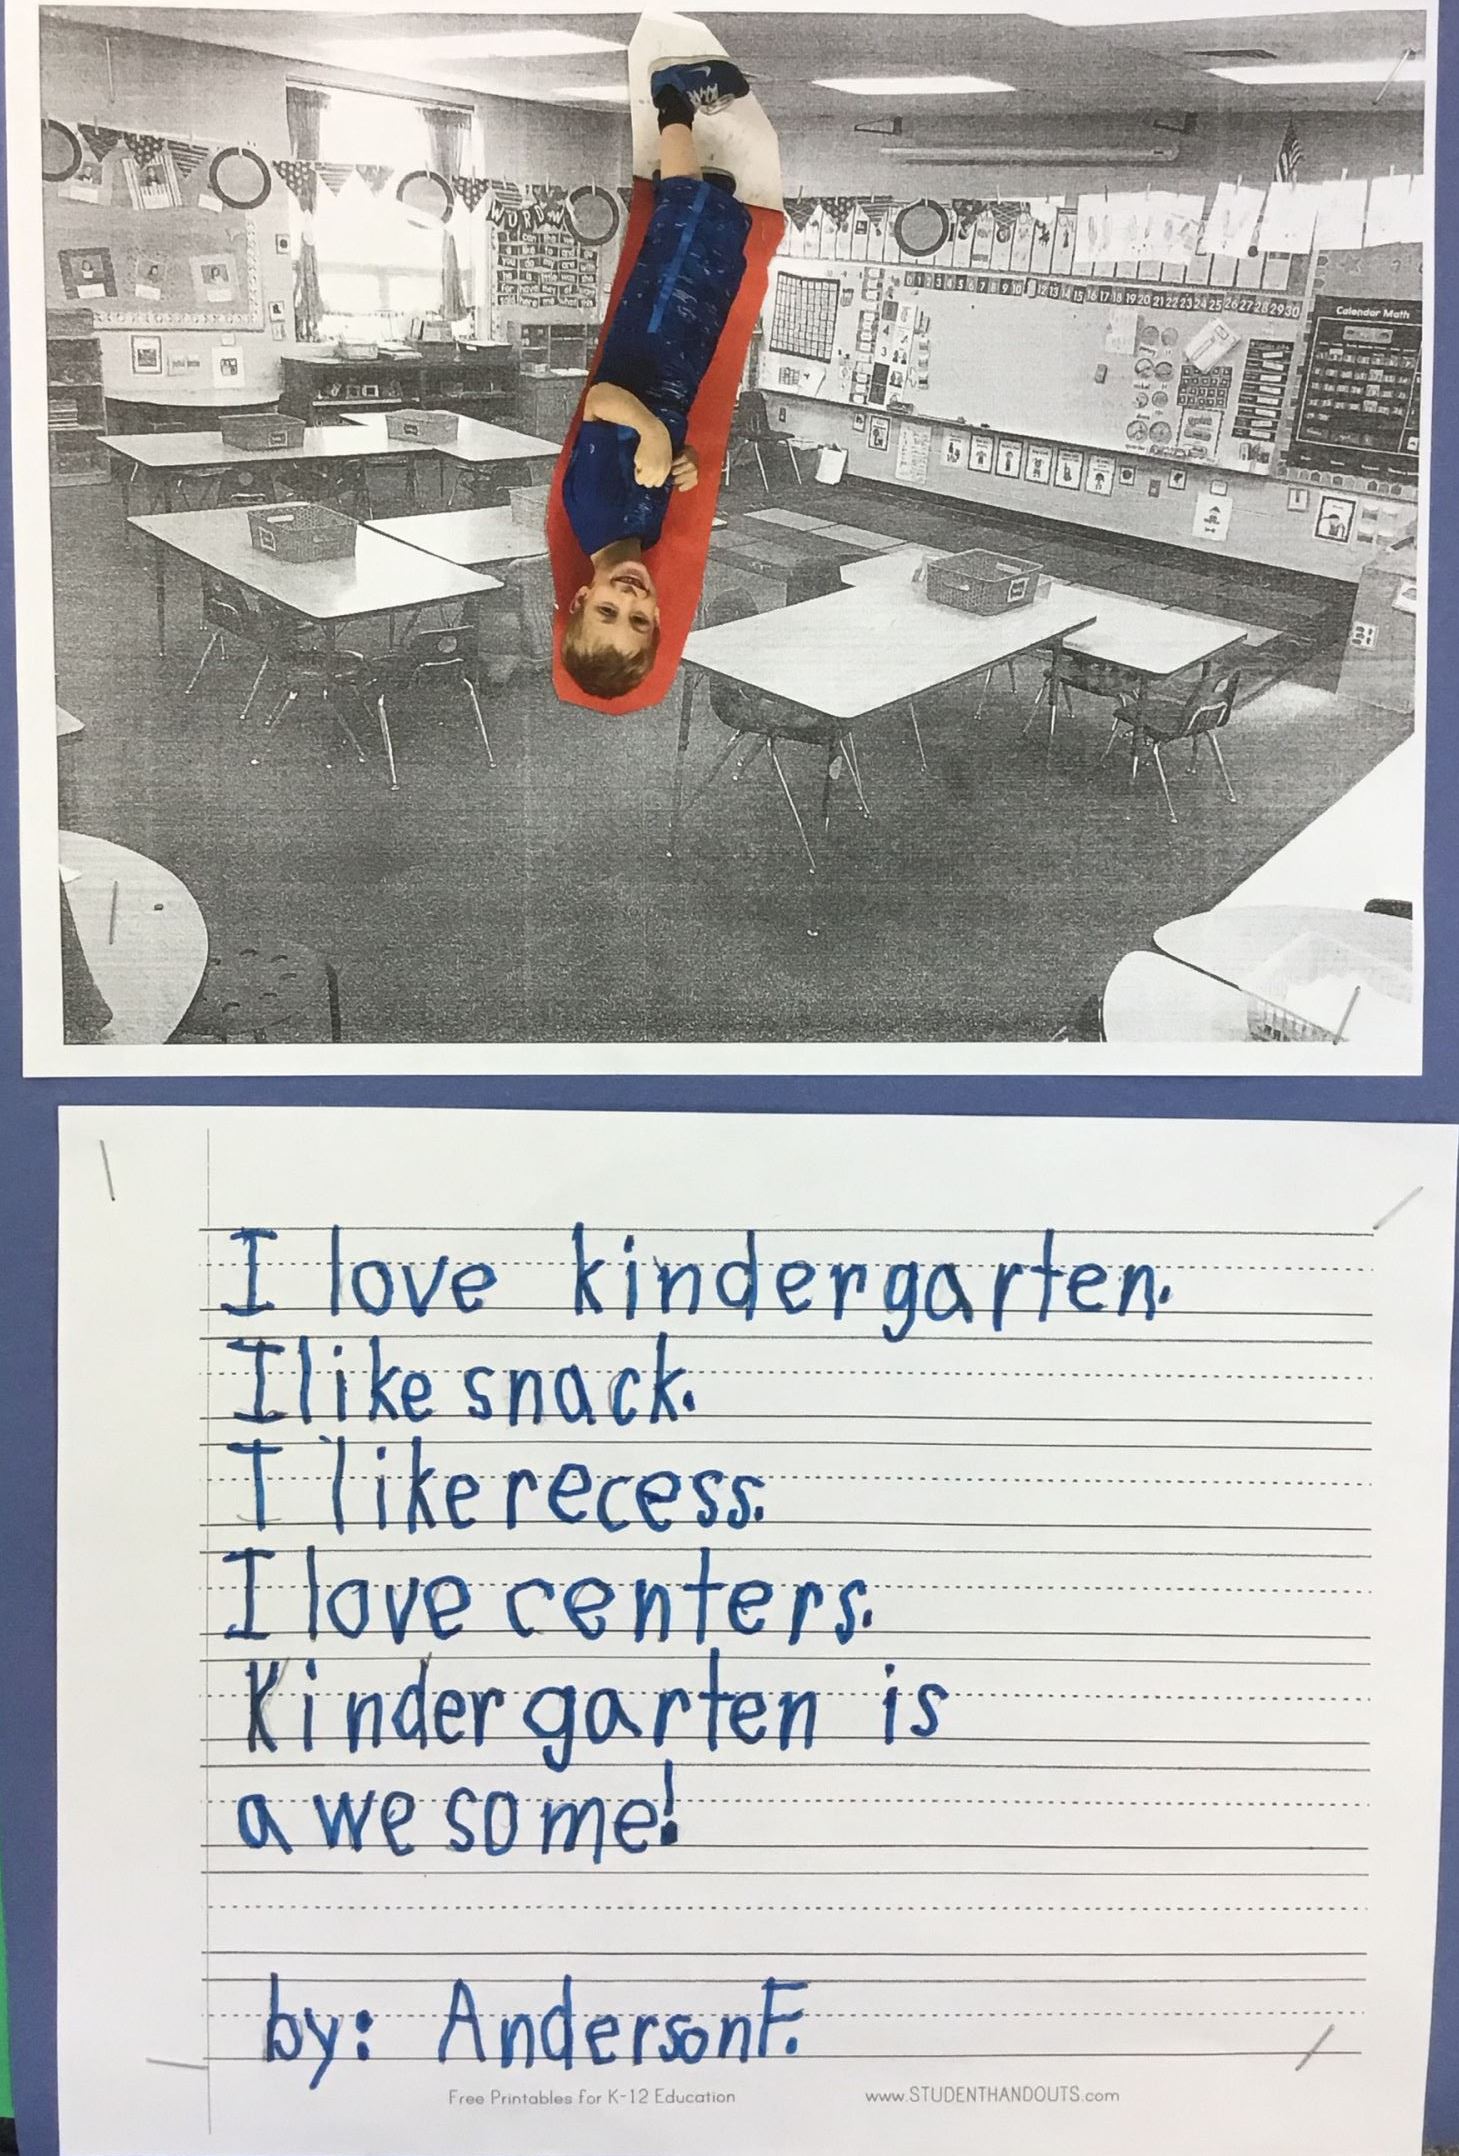 WORD W
0 1 2 3 4 5 6 7 8 9 10 11 12 13 14 15 16 17 18 19 20 21 22 23 24 25 26 27 28 29 30
Calendar Math
I love kindergarten.
I like snack.
I like recess.
I love centers.
Kindergarten is
awesome!
by: Anderson F.
Free Printables for K-12 Education www.STUDENTHANDOUTS.com